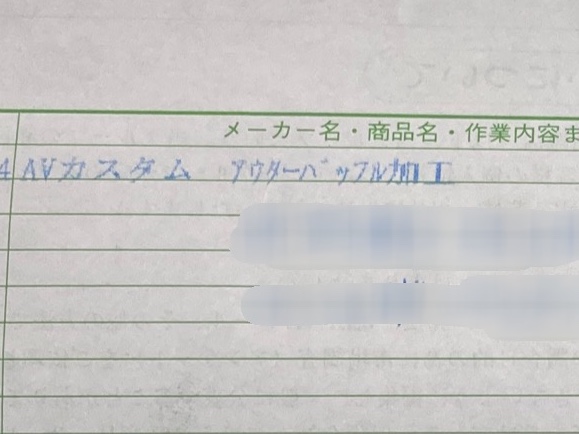 メーカー名・商品名・作業内容ま
4 AVカスタム アウターバッフル加工